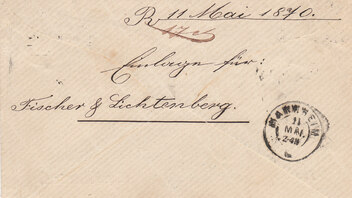 R. 11 Mai 1870.
Einlage für:
Fischer & Lichtenberg.
MANNHEIM
11
MAI